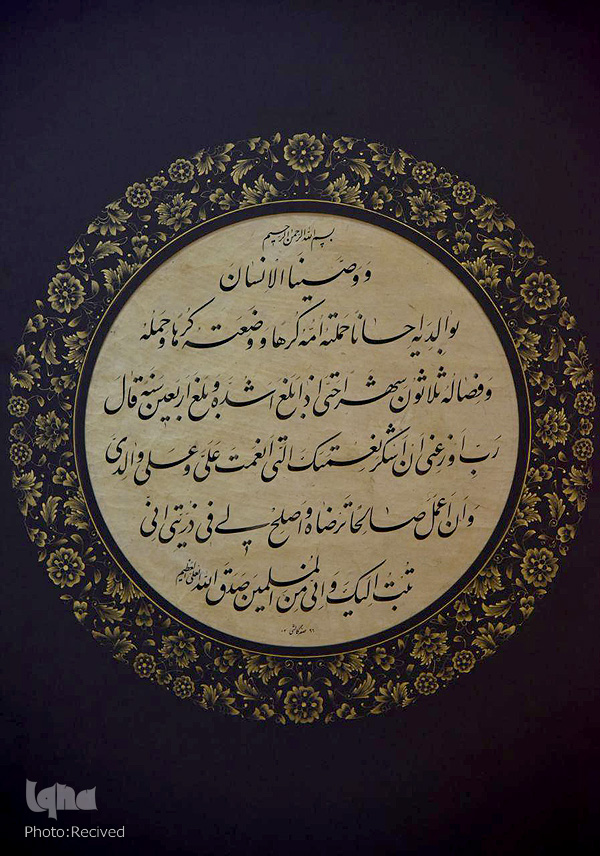 بسم الله الرحمن الرحیم
وَوَصَّینا الاِنسانَ
بِوالِدَیهِ اِحسانا حَمَلَتهُ اُمُّهُ کُرهاً وَ وَضَعَتهُ کُرهاً وَ حَملُهُ
وَ فِصالُهُ ثَلاثُونَ شَهراً حَتّی اِذا بَلَغَ اَشُدَّهُ وَ بَلَغَ اَربَعینَ سَنَةً قالَ
رَبِّ اَوزِعنی اَن اَشکُرَ نِعمَتَکَ الَّتی اَنعَمتَ عَلَیَّ وَ عَلی والِدَیَّ
وَ اَن اَعمَلَ صالِحاً تَرضاهُ وَ اَصلِح لی فی ذُرِّیَتی اِنّی
تُبتُ اِلَیکَ وَ اِنّی مِنَ المُسلِمینَ صدق الله العلی العظیم
Iqna
Photo:Recived